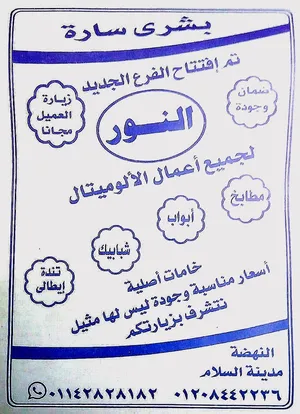 بشرى سارة
تم إفتتاح الفرع الجديد
ضمان
وجودة
زيارة
العميل
مجانا
النور
لجميع أعمال الألوميتال
مطابخ
أبواب
شبابيك
تندة
إيطالى
خامات أصلية
أسعار مناسبة وجودة ليس لها مثيل
نتشرف بزيارتكم
النهضة
مدينة السلام
٠١٢٠٨٤٤٢٢٣٦
٠١١٤٢٨٢٨١٨٢